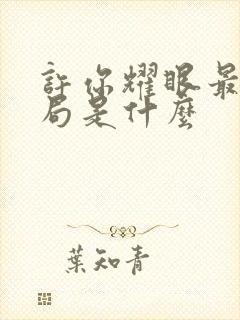 許你耀眼最
局是什麼
葉知青